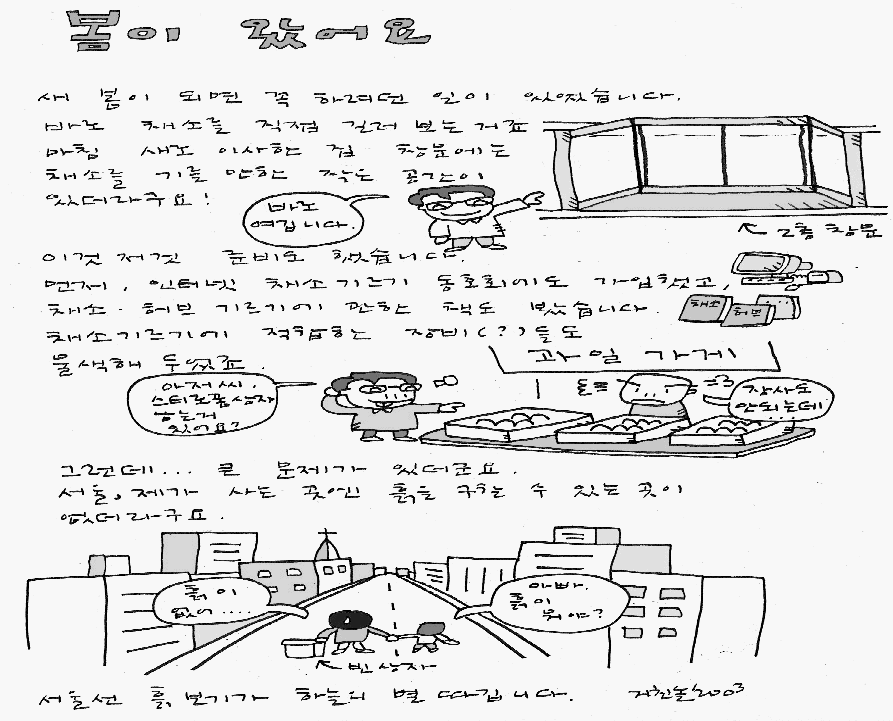 봄이 왔어요
새 봄이 되면 꼭 하려던 일이 있었습니다.
바로 채소를 직접 길러 보는거죠
마침 새로 이사한 집 창문에는
채소를 기를 만한 작은 공간이
있더라구요!
바로
여깁니다.
2층 창문
이것 저것 준비도 했습니다.
먼저, 인터넷 채소기르기 동호회에도 가입했고,
채소·허브 기르기에 관한 책도 봤습니다.
채소
허브
채소기르기에 적합한 장비(?)들도
물색해 두었죠.
과일 가게
아저씨,
스티로폼상자
남는거
있어요?
장사도
안되는데
그런데... 큰 문제가 있더군요.
서울, 제가 사는 곳에선 흙을 구할 수 있는 곳이
없더라구요.
흙이
없어.....
아빠,
흙이
뭐야?
빈상자
서울선 흙 보기가 하늘의 별 따깁니다.
2003